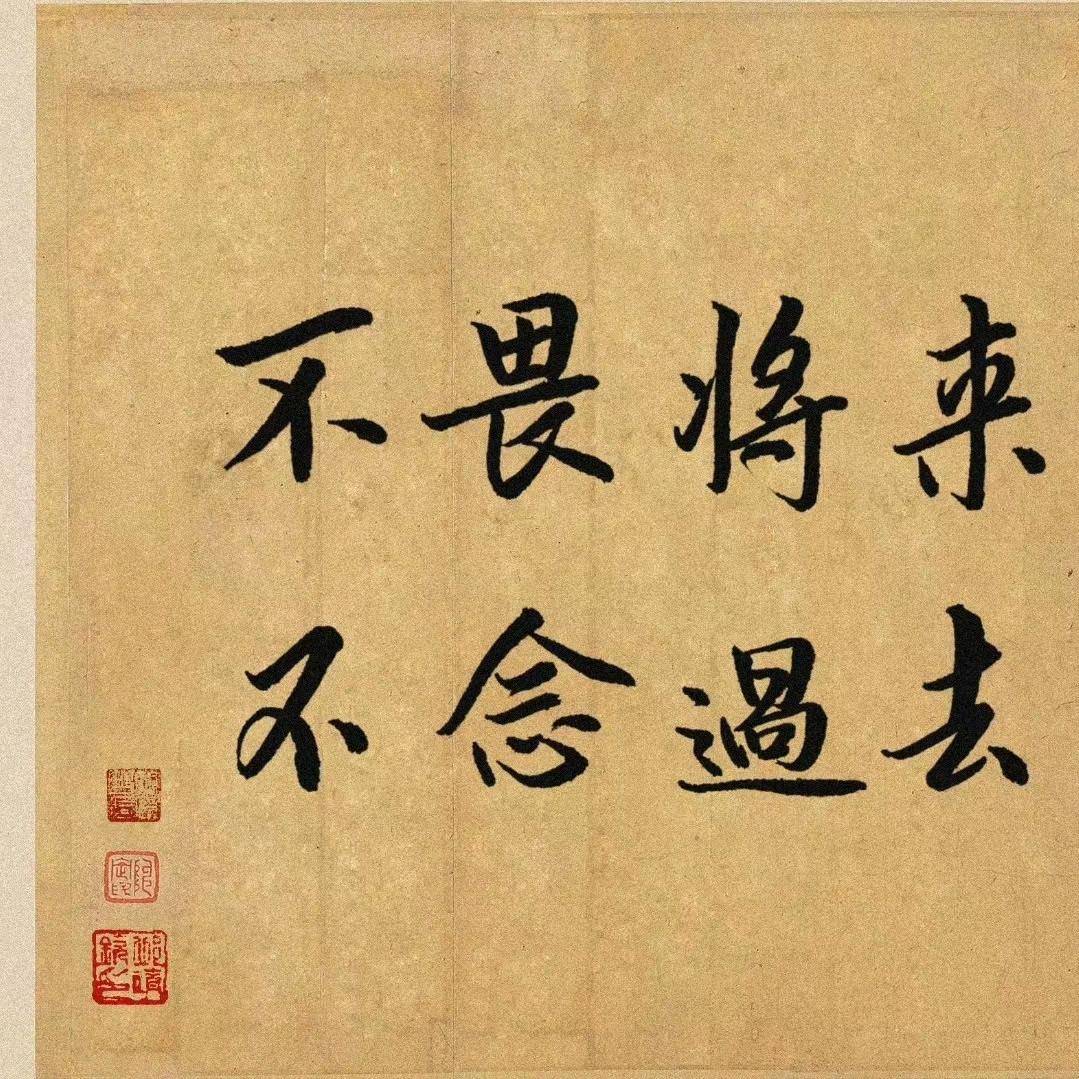 不畏將来
不念過去